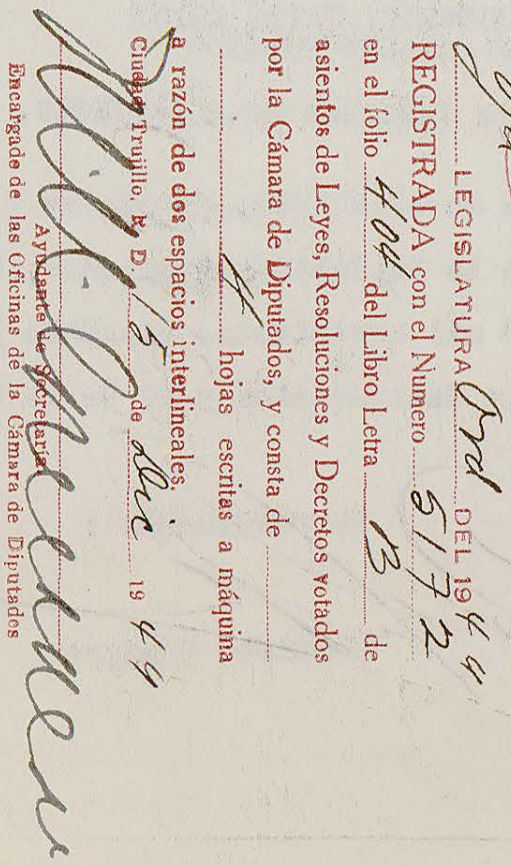 LEGISLATURA Ord DEL 1944
REGISTRADA con el Numero 5172
en el folio 404 del Libro Letra B de
asientos de Leyes, Resoluciones y Decretos votados
por la Cámara de Diputados, y consta de
4 hojas escritas a máquina
a razón de dos espacios interlineales.
Ciudad Trujillo, R. D. 15 de Dic 1944
Ayudante de Secretaria
Encargado de las Oficinas de la Cámara de Diputados